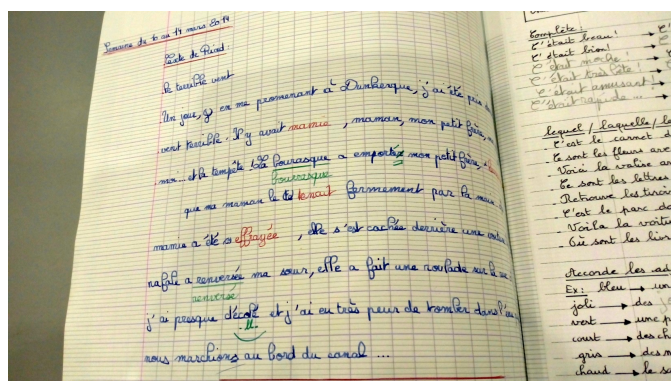 Semaine du 10 au 14 mars 2014
Texte de Riad :
Le terrible vent
Un jour, en me promenant à Dunkerque, j'ai été pris
vent terrible. Il y avait mamie, maman, mon petit frère,
moi... et la tempête ! La bourasque a emportée mon petit frère,
bourrasque
que ma maman le tenait fermement par la main
mamie a été effrayée, elle s'est cachée derrière une
rafale a renversée ma sœur, elle a fait une roulade sur le
renversé
j'ai presque décolé et j'ai eu très peur de tomber dans l'eau
ll
nous marchions au bord du canal ...
Complète :
C'était beau ! → C'
C'était bien ! →
C'était moche ! →
C'était très bête ! →
C'était amusant ! →
C'était rapide ... →
lequel / laquelle /
C'est le carnet
Ce sont les fleurs
Voici la valise
Ce sont les lettres
Retrouve les
C'est le parc
Voila la
Où sont les
Accorde les
Ex : bleu → un
joli → des
vert → une
court → des
gris → des
chaud → la